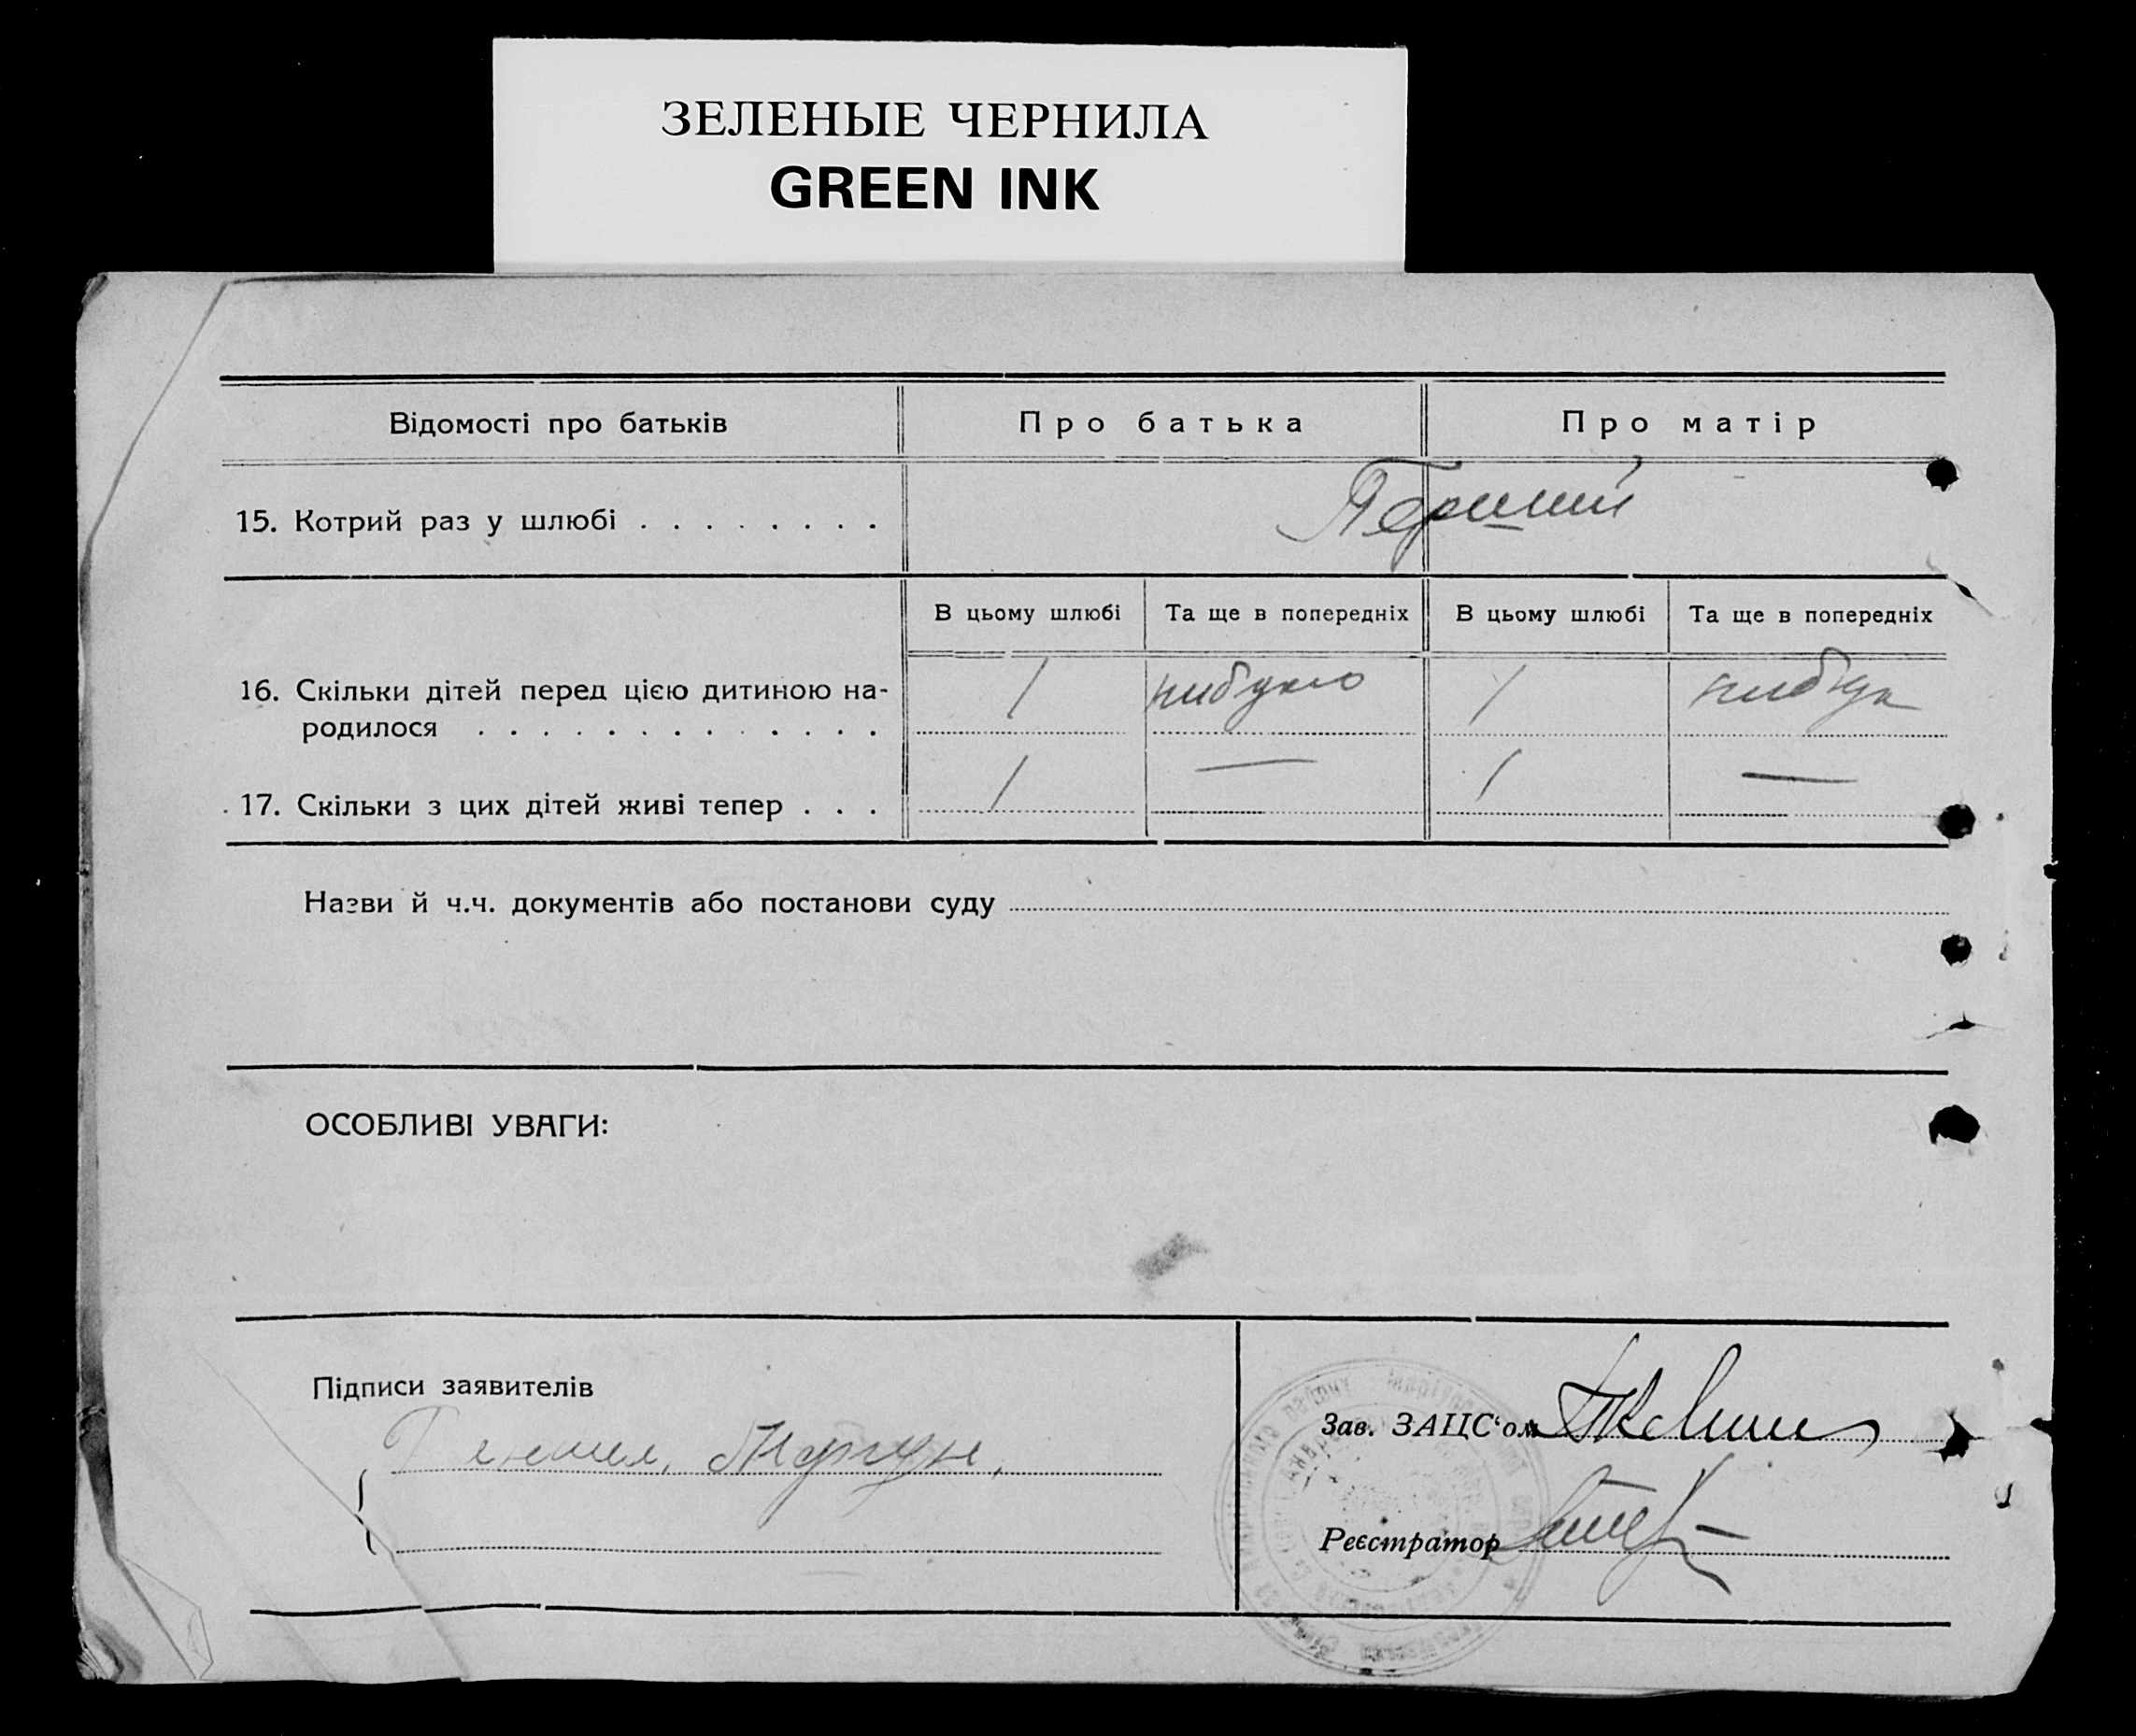 ЗЕЛЕНЫЕ ЧЕРНИЛА
GREEN INK
Відомості про батьків Про батька Про матір
15. Котрий раз у шлюбі . . . . . . . . Перший
В цьому шлюбі Та ще в попередніх В цьому шлюбі Та ще в попередніх
16. Скільки дітей перед цією дитиною на-
родилося . . . . . . . . . . . . . 1 нибуло 1
17. Скільки з цих дітей живі тепер . . . 1 — 1 —
Назви й ч.ч. документів або постанови суду
ОСОБЛИВІ УВАГИ:
Підписи заявителів
Зав. ЗАЦС'ом
Реєстратор